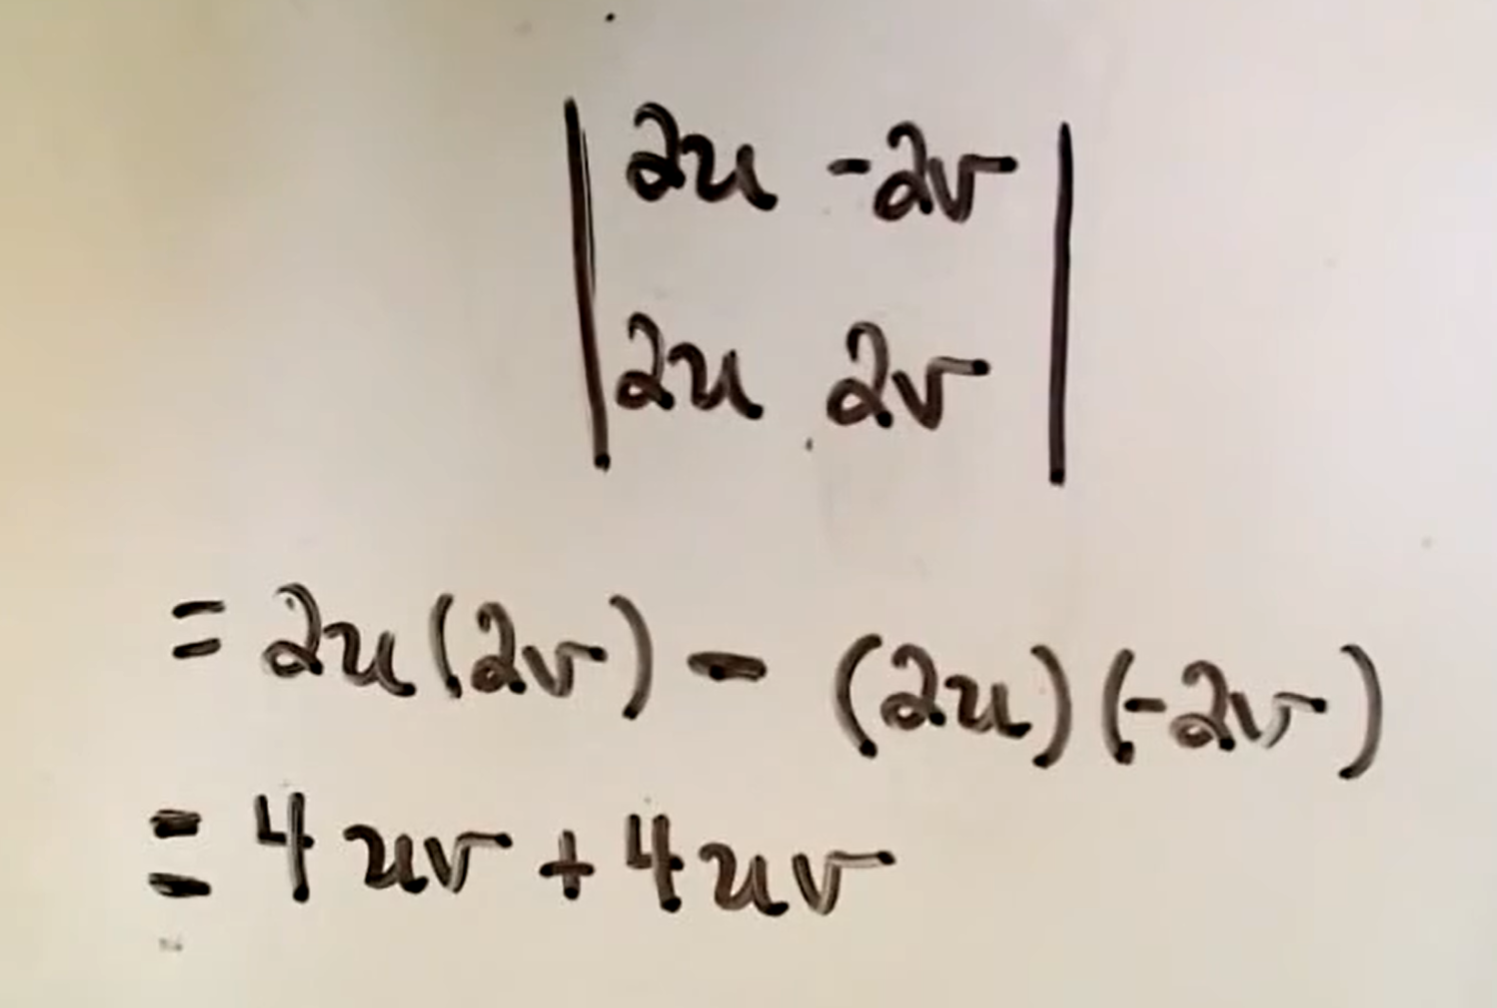 | 2u -2v |
| 2u 2v |
= 2u(2v) - (2u)(-2v)
= 4uv + 4uv